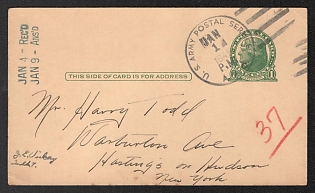 JAN 4 - REC'D
JAN 9 - ANS'D
U.S. ARMY POSTAL SER
JAN
14
THIS SIDE OF CARD IS FOR ADDRESS
Mr. Harry Todd
Warburton Ave
Hastings on Hudson
New York
37